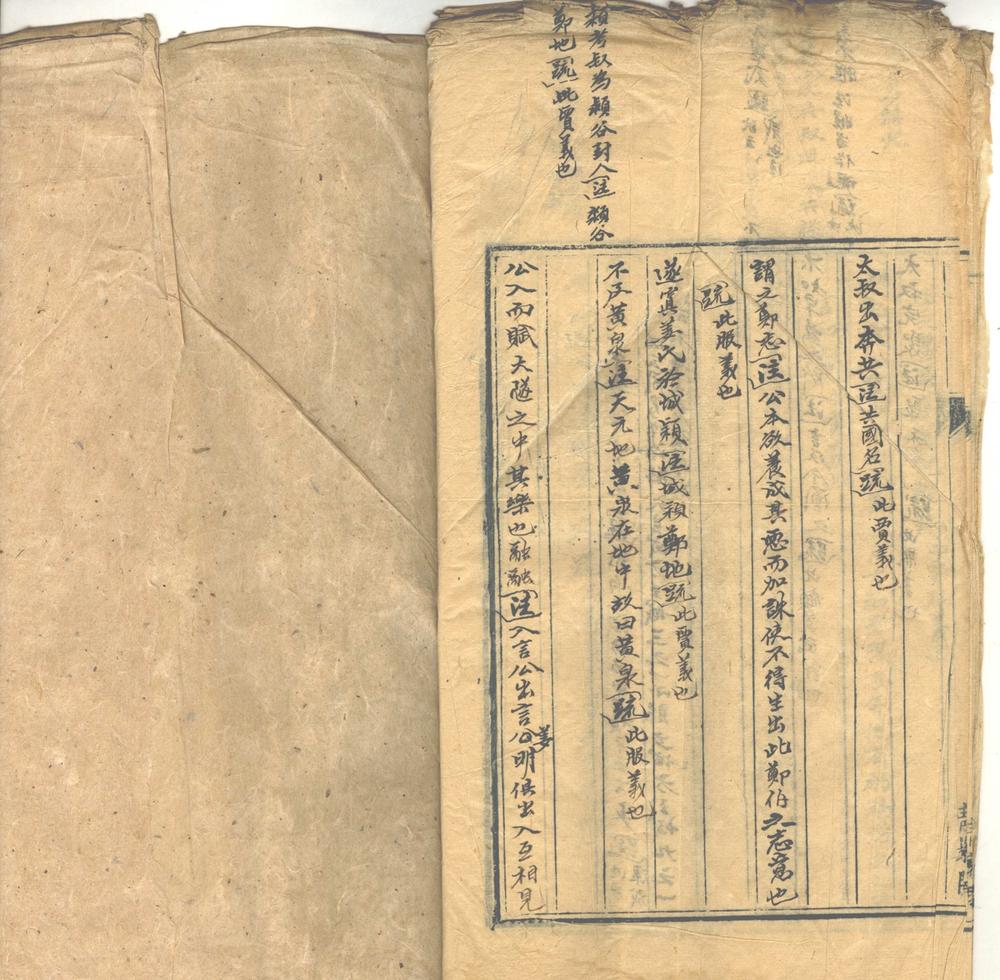 太叔出奔共注共國名疏此賈義也
謂之鄭志注公本欲養成其惡而加誅使不得生出此鄭伯之志意也
疏此服義也
遂寘姜氏於城潁注城潁鄭地疏此賈義也
潁考叔為潁谷封人注潁谷
鄭地疏此賈義也
不及黃泉注天元地黃泉在地中故曰黃泉疏此服義也
公入而賦大隧之中其樂也融融注入言公出言公姜明俱出入互相見